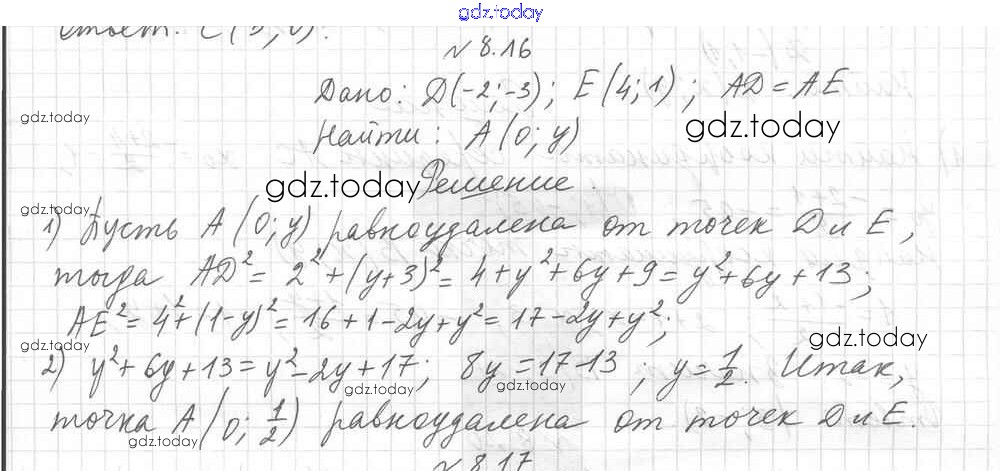 gdz.today
Ответ: C(3; 0).
№ 8.16
Дано: D(-2; -3); E(4; 1); AD = AE
gdz.today
Найти: A(0; y)
gdz.today
gdz.today Решение.
gdz.today
1) Пусть A(0; y) равноудалена от точек D и E,
тогда AD² = 2² + (y+3)² = 4 + y² + 6y + 9 = y² + 6y + 13;
AE² = 4² + (1-y)² = 16 + 1 - 2y + y² = 17 - 2y + y²;
gdz.today
gdz.today
2) y² + 6y + 13 = y² - 2y + 17; 8y = 17 - 13; y = 1/2. Итак,
gdz.today
gdz.today
точка A(0; 1/2) равноудалена от точек D и E.
gdz.today
№ 8.17